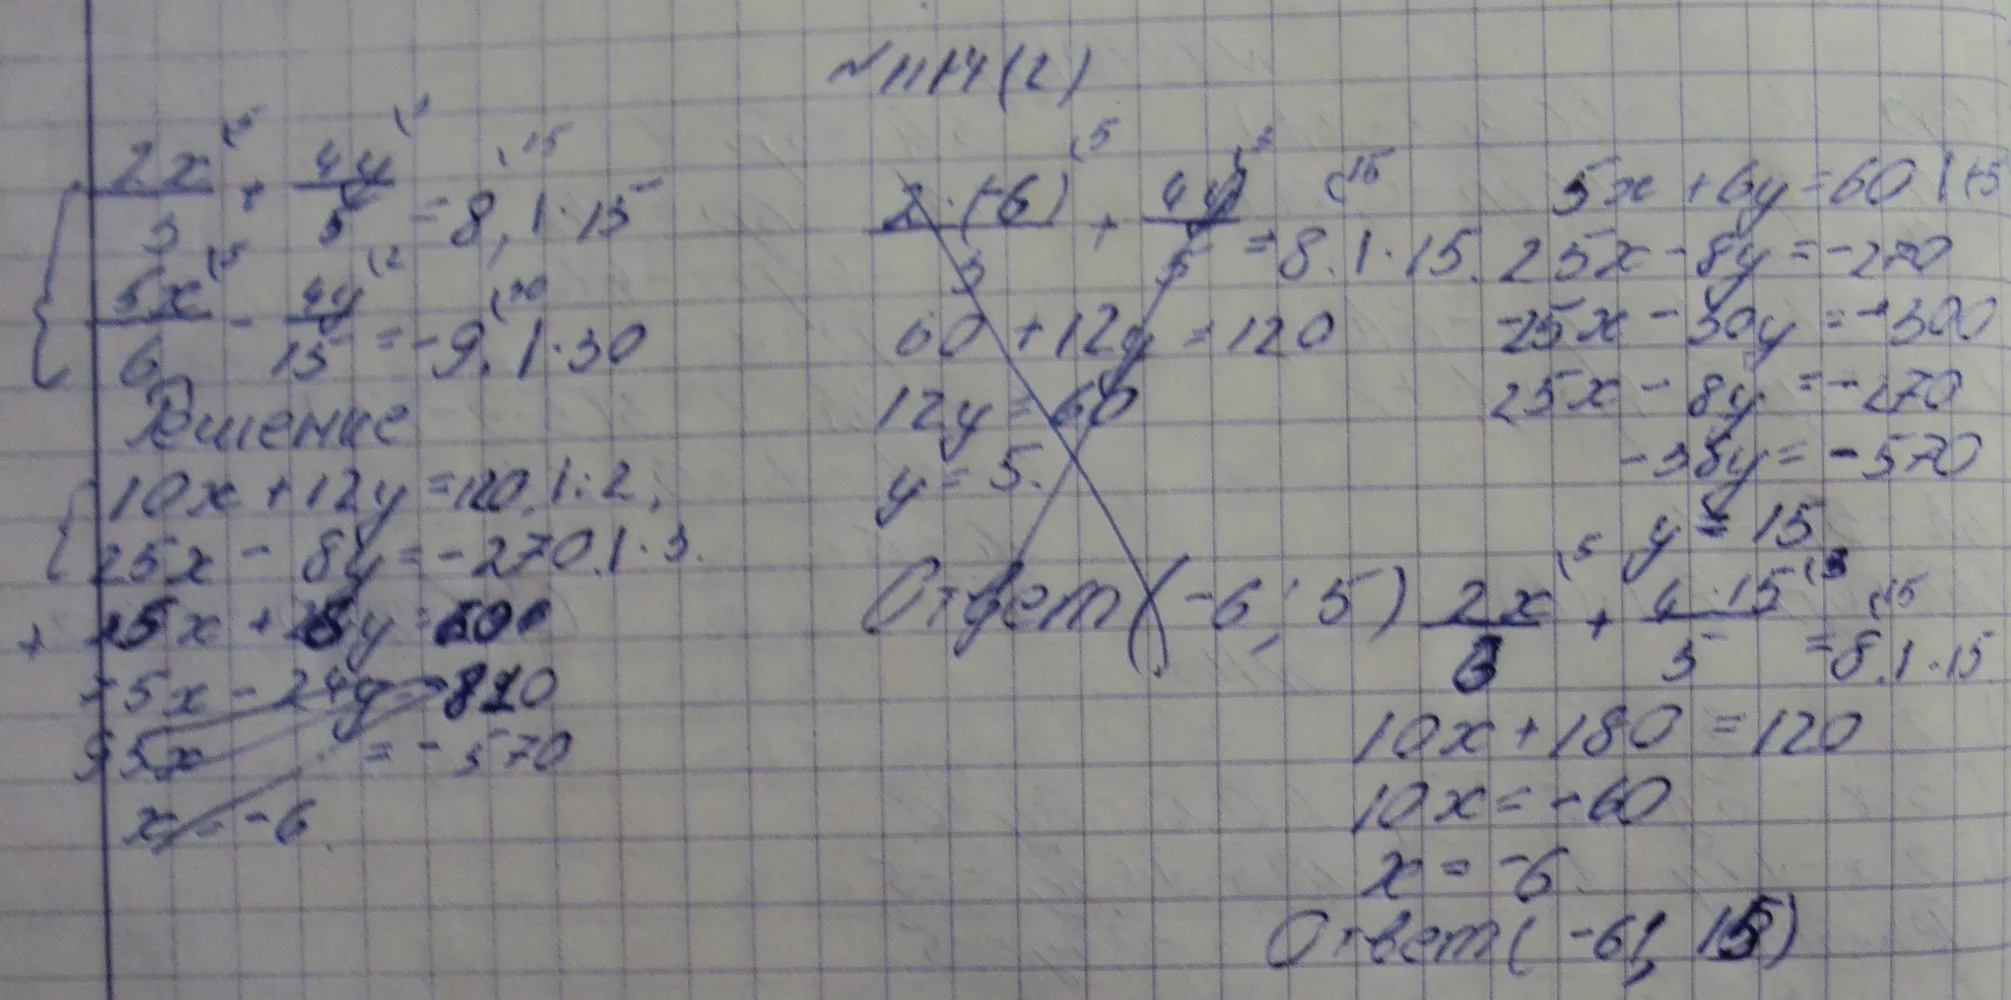 № 1174(2)
2x/3 (5 + 4y/5 (3 = 8, (15 | · 15
5x/6 (5 - 4y/15 (2 = -9, (30 | · 30
Решение
10x + 12y = 120. | : 2,
25x - 8y = -270. | · 3.
75x - 24y = -810
= -570
x = -6.
2·(-6)/3 (5 + 4y/5 (3 = 8. (15 | · 15.
60 + 12y = 120
12y = 60
y = 5.
Ответ (-6; 5)
5x + 6y = 60 |
25x - 8y = -270
-25x - 30y = -300
25x - 8y = -270
-38y = -570
y = 15
2x/3 (5 + 4·15/5 (3 = 8. (15 | · 15.
10x + 180 = 120
10x = -60
x = -6
Ответ (-6; 15)